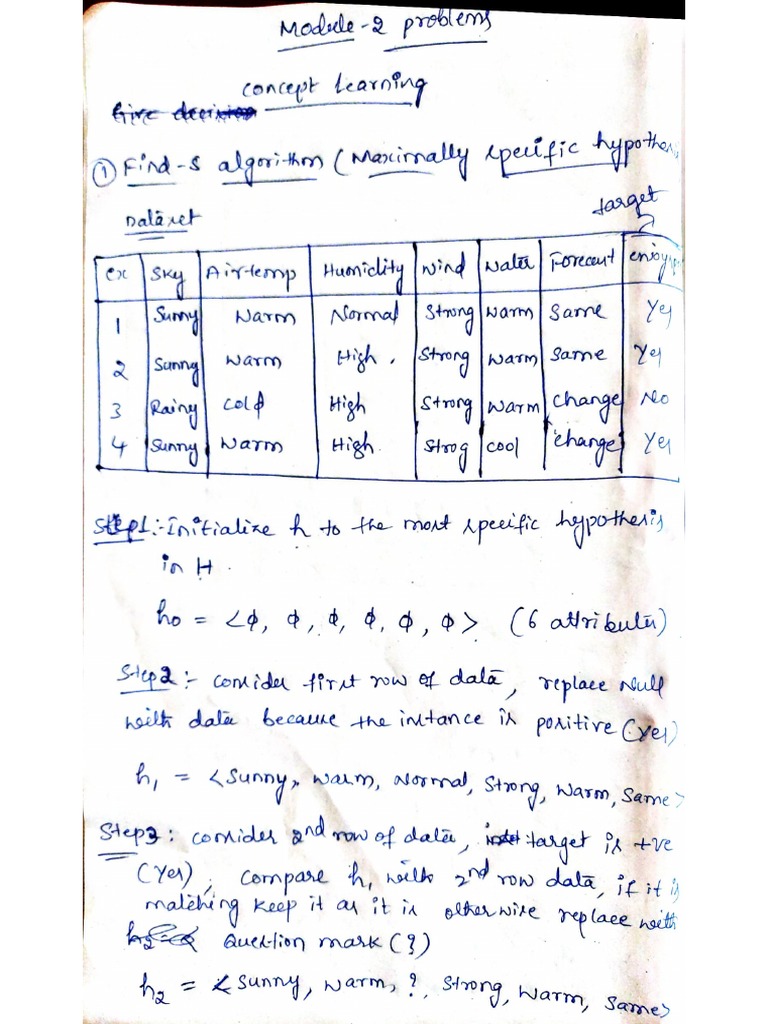 Module-2 problems
concept learning
Give decision
① Find-S algorithm (Maximally specific hypothesis
Dataset
target
ex Sky Airtemp Humidity Wind Water Forecast enjoysp
1 Sunny Warm Normal Strong Warm Same Yes
2 Sunny Warm High. Strong Warm Same Yes
3 Rainy Cold High Strong Warm change No
4 Sunny Warm High. Strog cool change Yes
Step1:- Initialize h to the most specific hypothesis
in H.
h0 = <Φ, Φ, Φ, Φ, Φ, Φ> (6 attributes)
Step2:- consider first row of data, replace Null
with data because the instance is positive (Yes)
h1 = <Sunny, Warm, Normal, Strong, Warm, Same>
Step3: consider 2nd row of data, target is +ve
(Yes), compare h1 with 2nd row data, if it is
matching keep it as it is otherwise replace with
Question mark (?)
h2 = <Sunny, Warm, ?, Strong, Warm, Same>